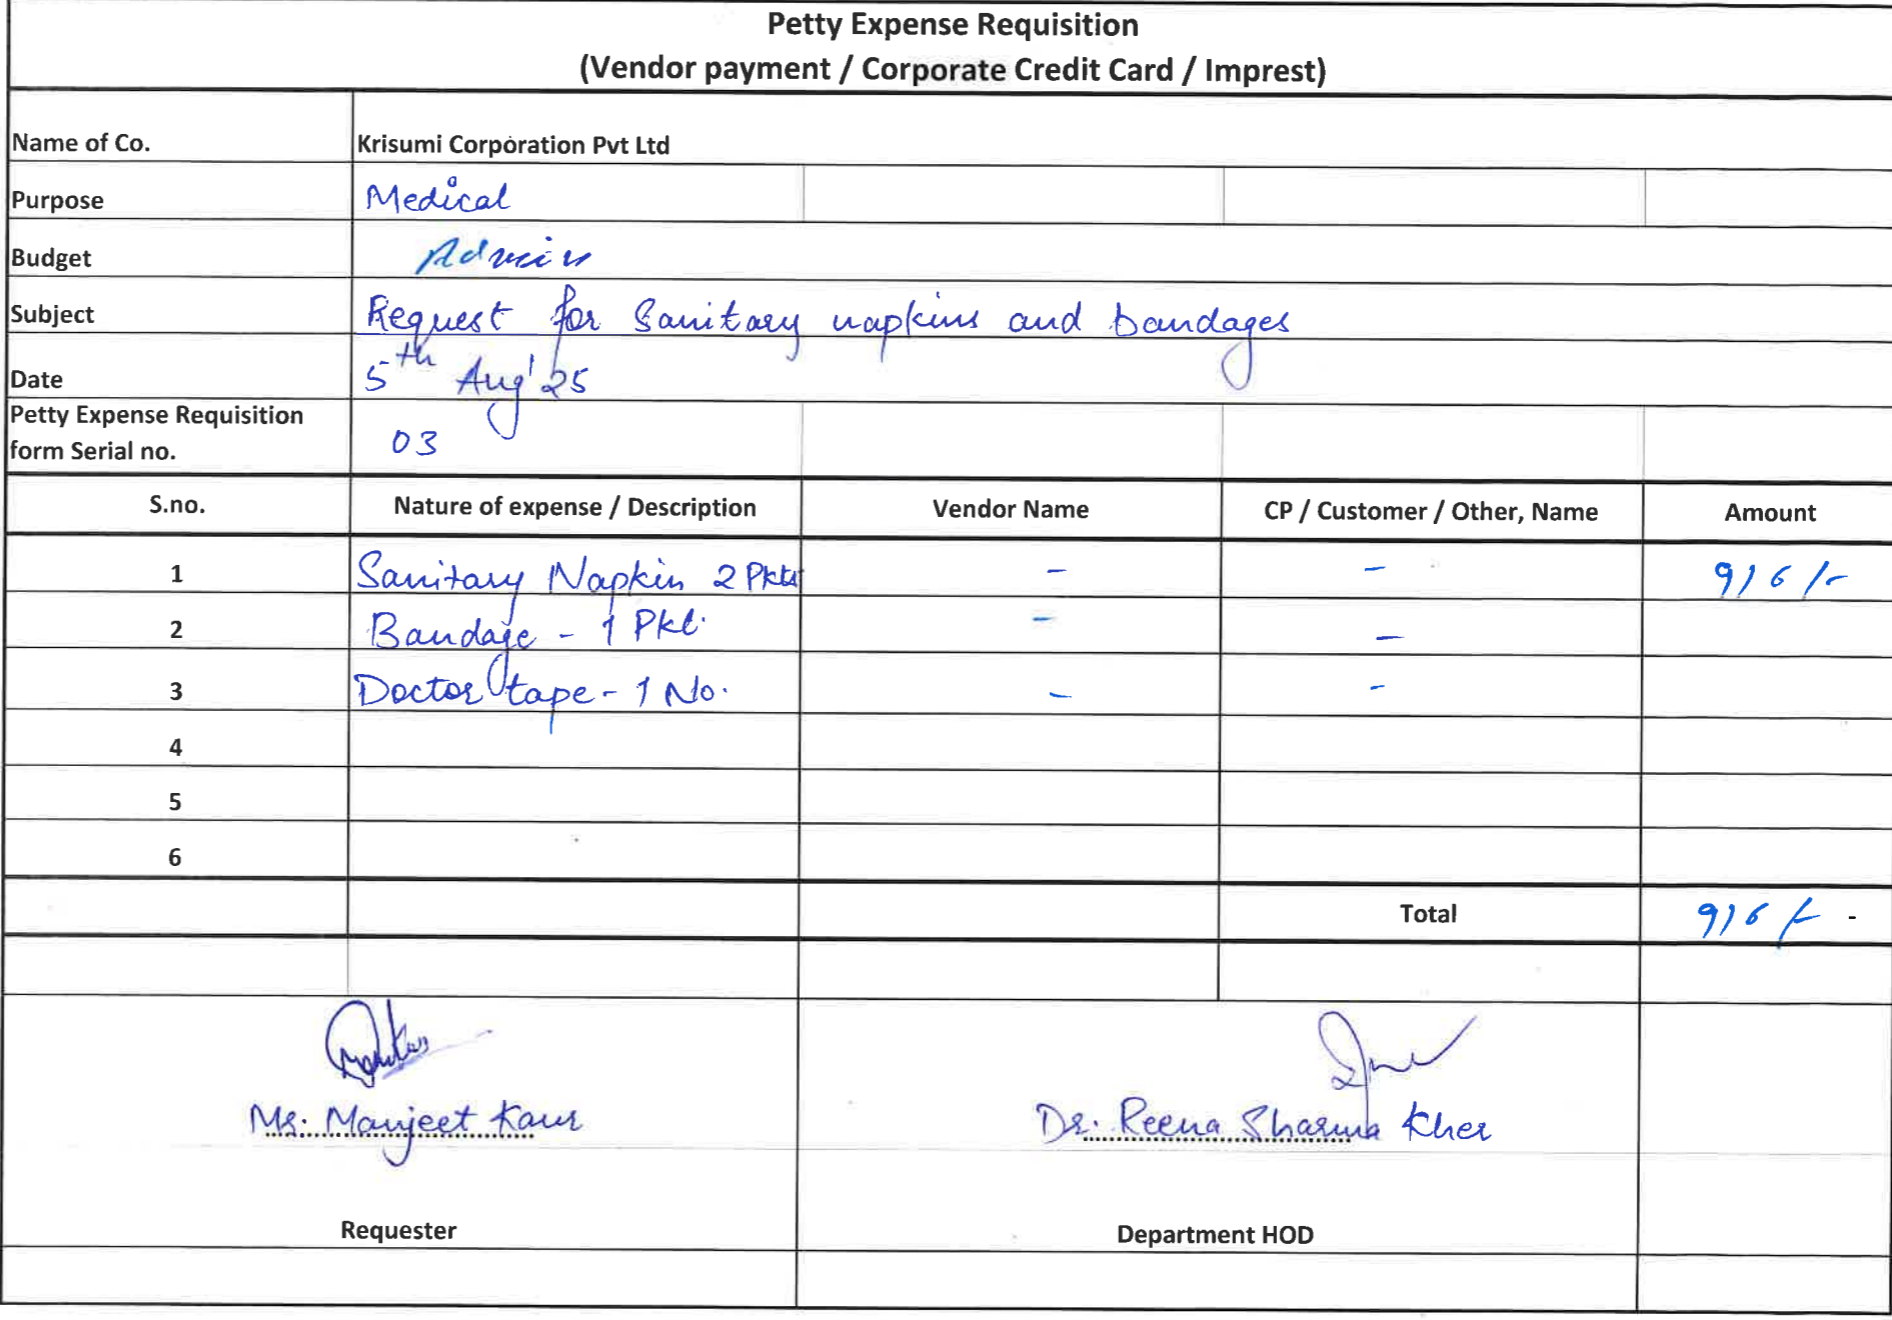 Petty Expense Requisition
(Vendor payment / Corporate Credit Card / Imprest)
Name of Co. Krisumi Corporation Pvt Ltd
Purpose Medical
Budget Admin
Subject Request for Sanitary napkins and bandages
Date 5th Aug'25
Petty Expense Requisition
form Serial no. 03
S.no. Nature of expense / Description Vendor Name CP / Customer / Other, Name Amount
1 Sanitary Napkin 2 Pkts - - 916/-
2 Bandage - 1 Pkt. - -
3 Doctor tape - 1 No. - -
4
5
6
Total 916/- -
Ms. Manjeet Kaur Dr. Reena Sharma Kher
Requester Department HOD